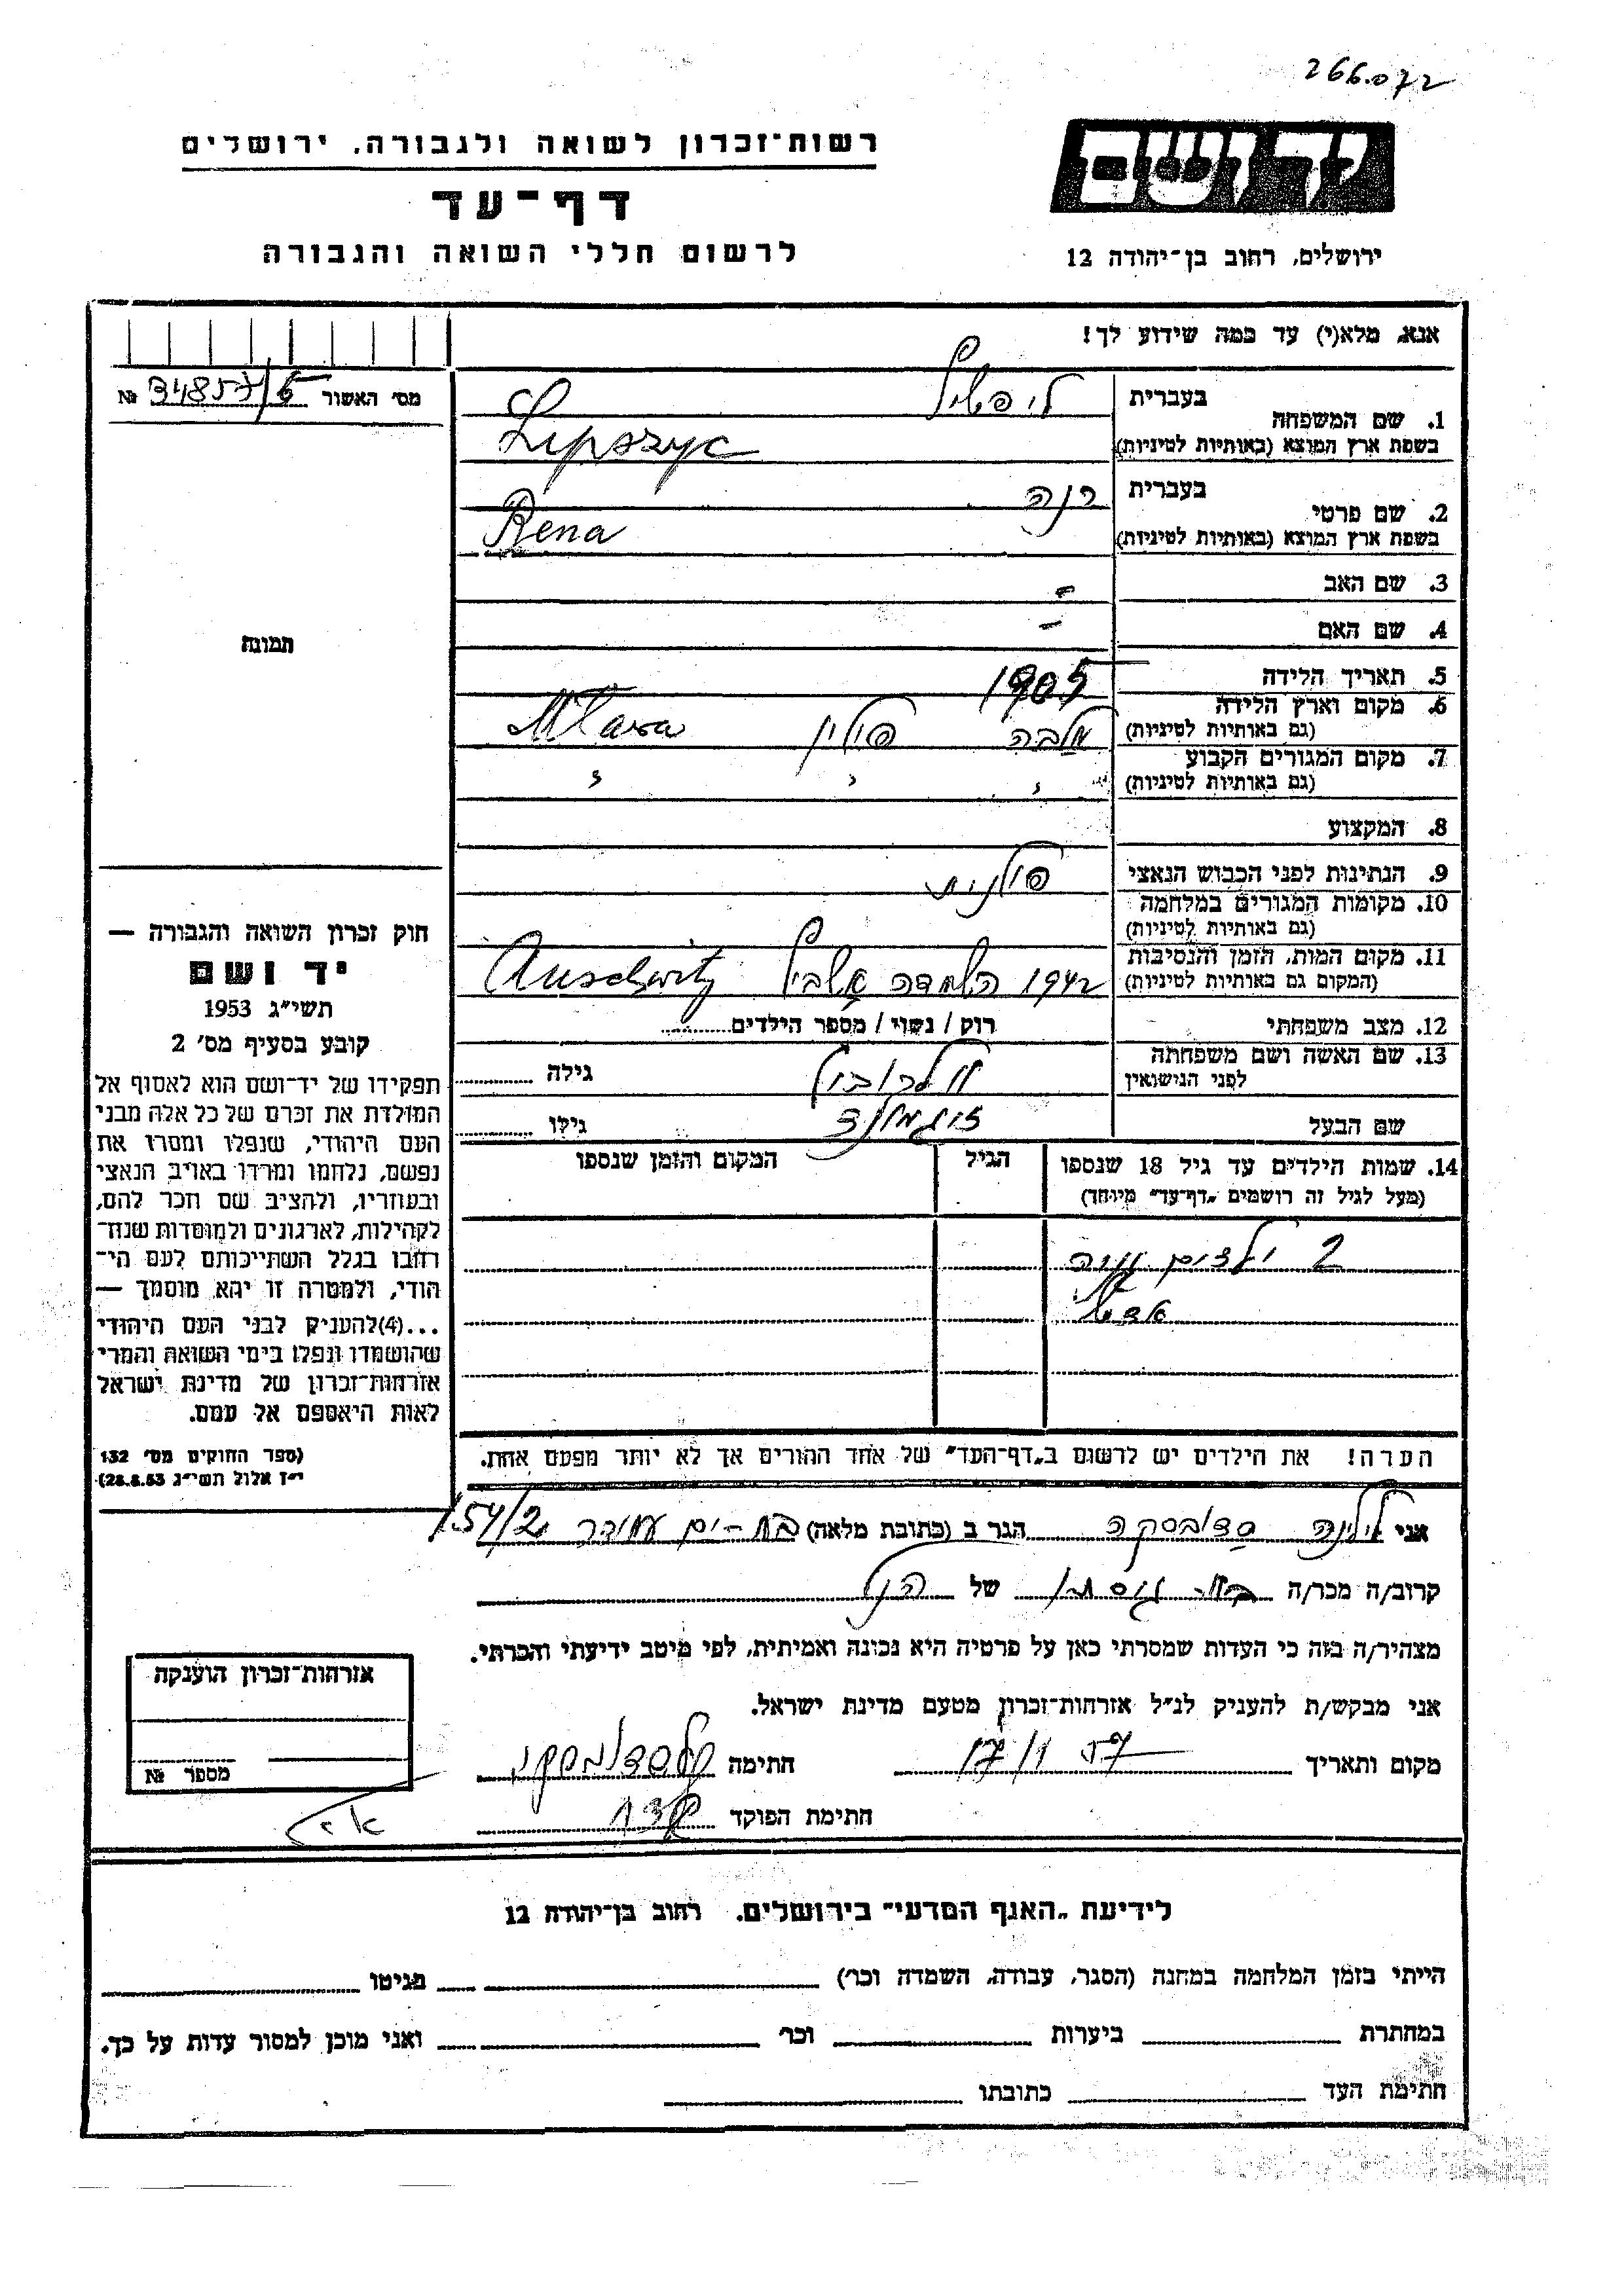 266.072
יד ושם
ירושלים, רחוב בן־יהודה 12
רשות־זכרון לשואה ולגבורה, ירושלים
דף־עד
לרשום חללי השואה והגבורה
אנא, מלא(י) עד כמה שידוע לך!
מס׳ האשור №
1. שם המשפחה
בעברית ליפשיץ
בשפת ארץ המוצא (באותיות לטיניות) Lipszyc
2. שם פרטי
בעברית רנה
בשפת ארץ המוצא (באותיות לטיניות) Rena
3. שם האב -
4. שם האם -
5. תאריך הלידה 1905
6. מקום וארץ הלידה
(גם באותיות לטיניות) מלבה פולין Mlawa
7. מקום המגורים הקבוע
(גם באותיות לטיניות) " " "
8. המקצוע
9. הנתינות לפני הכבוש הנאצי פולנית
10. מקומות המגורים במלחמה
(גם באותיות לטיניות)
11. מקום המות, הזמן והנסיבות
(המקום גם באותיות לטיניות) 1942 השמדה Auschwitz
12. מצב משפחתי רוק / נשוי / מספר הילדים
13. שם האשה ושם משפחתה
לפני הנישואין גילה
שם הבעל זיגמונד גילו
14. שמות הילדים עד גיל 18 שנספו
(מעל לגיל זה רושמים „דף־עד” מיוחד)
הגיל
המקום והזמן שנספו
2 ילדים
תמונה
חוק זכרון השואה והגבורה —
יד ושם
תשי״ג 1953
קובע בסעיף מס׳ 2
תפקידו של יד־ושם הוא לאסוף אל
המולדת את זכרם של כל אלה מבני
העם היהודי, שנפלו ומסרו את
נפשם, נלחמו ומרדו באויב הנאצי
ובעוזריו, ולהציב שם וזכר להם,
לקהילות, לארגונים ולמוסדות שנח־
רבו בגלל השתייכותם לעם הי־
הודי, ולמטרה זו יהא מוסמך —
...(4) להעניק לבני העם היהודי
שהושמדו ונפלו בימי השואה והמרי
אזרחות־זכרון של מדינת ישראל
לאות היאספם אל עמם.
(ספר החוקים מס׳ 132
י״ז אלול תשי״ג 28.8.53)
הערה! את הילדים יש לרשום ב„דף־העד” של אחד ההורים אך לא יותר מפעם אחת.
אני הגר ב (כתובת מלאה) בת-ים עמידר 154/2
קרוב/ה מכר/ה של הנ״ל
מצהיר/ה בזה כי העדות שמסרתי כאן על פרטיה היא נכונה ואמיתית, לפי מיטב ידיעתי והכרתי.
אני מבקש/ת להעניק לנ״ל אזרחות־זכרון מטעם מדינת ישראל.
מקום ותאריך 17/1 57 חתימה
חתימת הפוקד
אזרחות־זכרון הוענקה
מספר №
לידיעת „האגף המדעי” בירושלים, רחוב בן־יהודה 12
הייתי בזמן המלחמה במחנה (הסגר, עבודה, השמדה וכו׳) בגיטו
במחתרת ביערות וכו׳ ואני מוכן למסור עדות על כך.
חתימת העד כתובתו